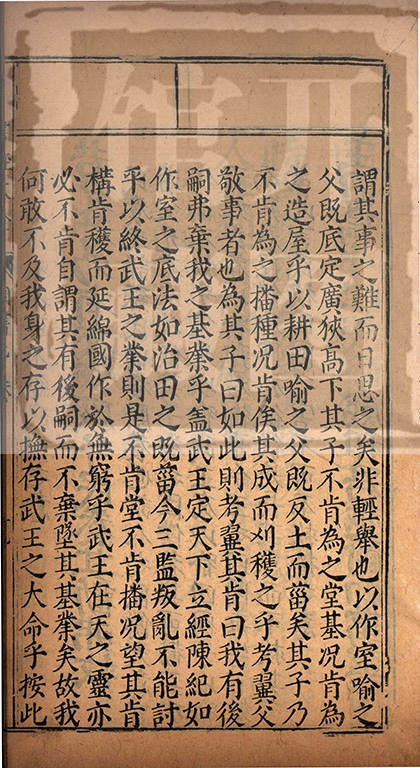 謂其事之難而日思之矣非輕舉也以作室喻之
父既底定廣狹高下其子不肯為之堂基况肯為
之造屋乎以耕田喻之父既反土而菑矣其子乃
不肯為之播種况肯俟其成而刈穫之乎考翼父
敬事者也為其子曰如此則考翼其肯曰我有後
嗣弗棄我之基業乎盖武王定天下立經陳紀如
作室之底法如治田之既菑今三監叛亂不能討
平以終武王之業則是不肯堂不肯播况望其肯
構肯穫而延綿國作於無窮乎武王在天之靈亦
必不肯自謂其有後嗣而不棄墜其基業矣故我
何敢不及我身之存以撫存武王之大命乎按此